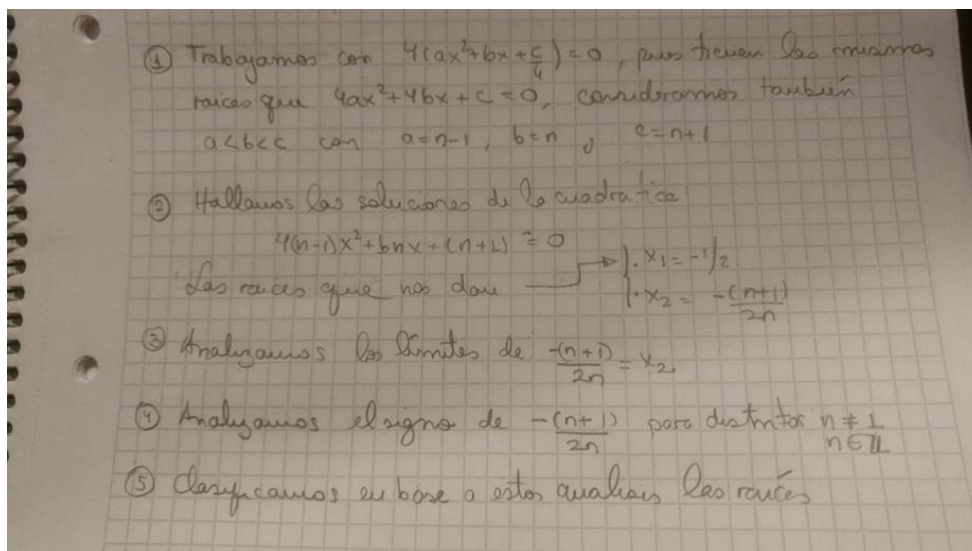 ① Trabajamos con 4(ax²+bx+c/4)=0, pues tienen las mismas
raíces que 4ax²+4bx+c=0, consideramos también
a<b<c con a=n-1, b=n y c=n+1
② Hallamos las soluciones de la cuadratica
4(n-1)x²+bnx+(n+1)=0
Las raíces que nos dan → { · x₁=-1/2
· x₂= -(n+1)/2n
③ Analizamos los límites de -(n+1)/2n = x₂
④ Analizamos el signo de -(n+1)/2n para distintos n≠1
n∈ℤ
⑤ Clasificamos en base a estos análisis las raíces